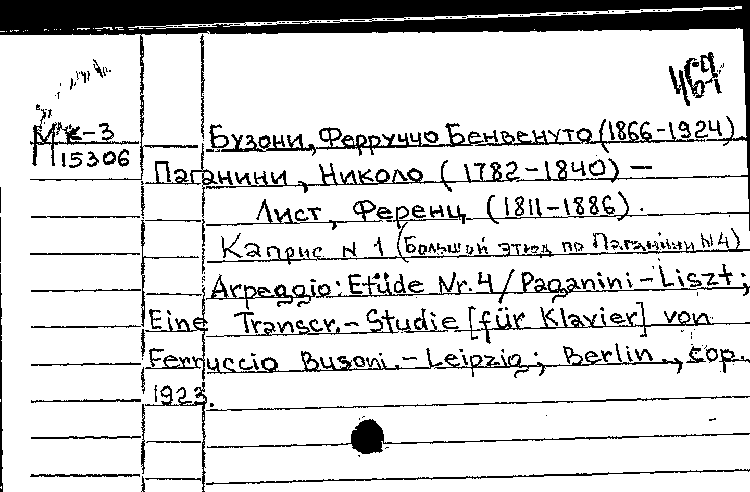 464
М К-3
П 15306
Бузони, Ферруччо Бенвенуто (1866-1924)
Паганини, Николо (1782-1840) —
Лист, Ференц (1811-1886).
Каприс N 1 (Большой этюд по Паганини N4)
Arpeggio: Etüde Nr. 4 / Paganini-Liszt;
Eine Transcr.-Studie [für Klavier] von
Ferruccio Busoni. - Leipzig; Berlin., cop.
1923.